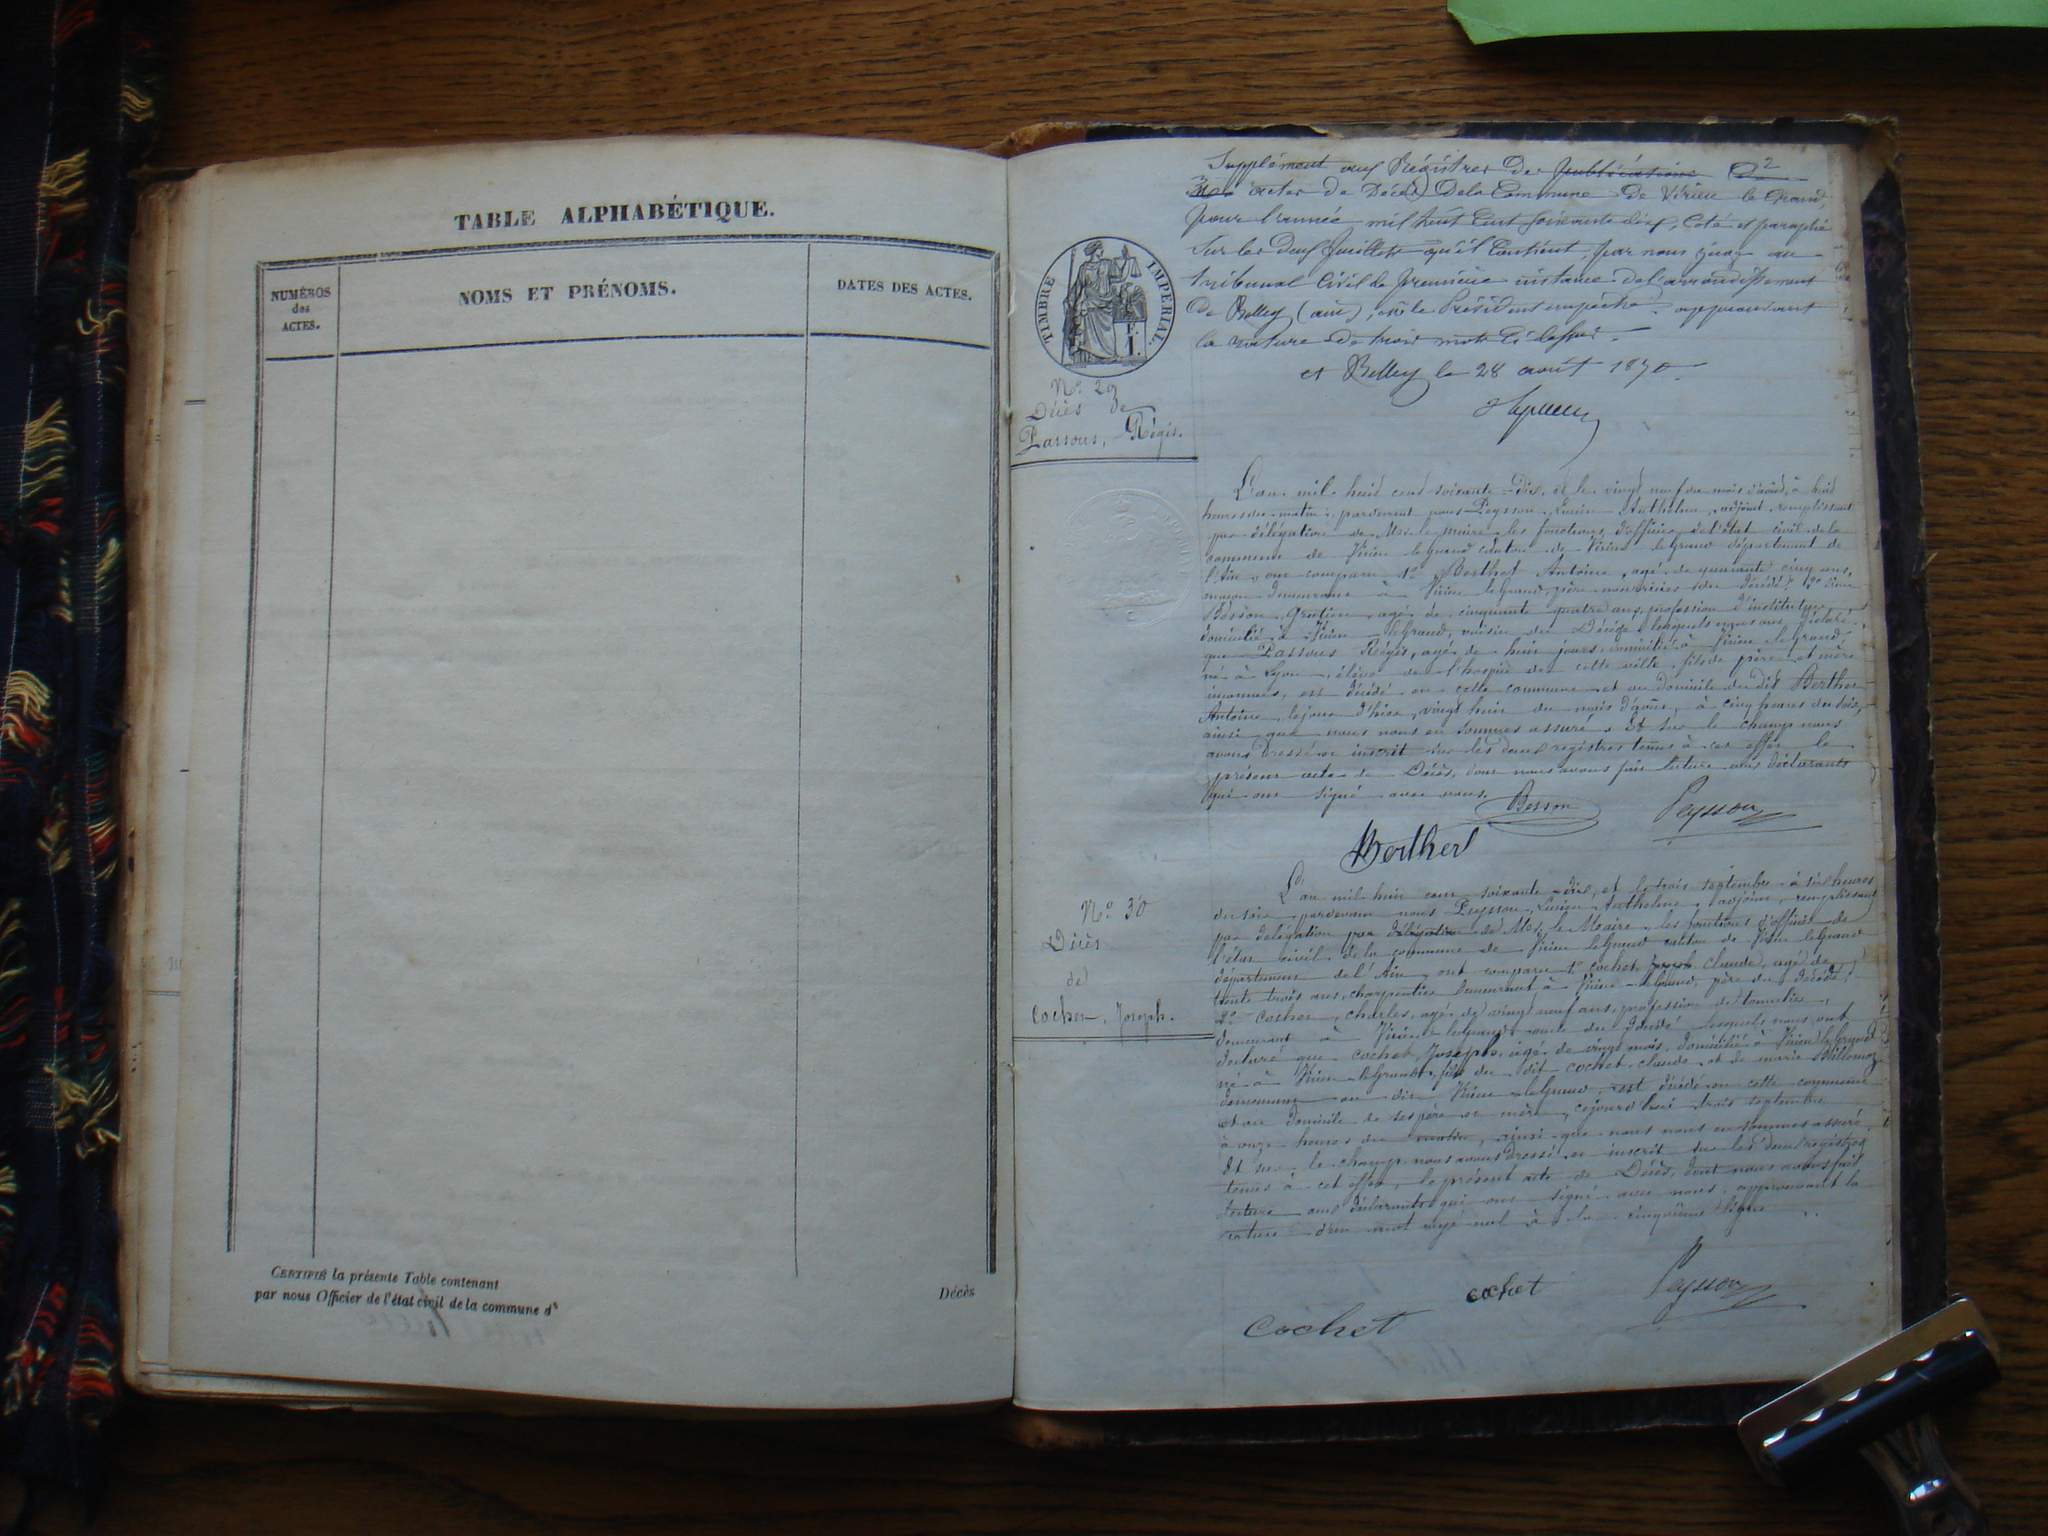 TABLE ALPHABÉTIQUE.
NUMÉROS
des
ACTES.
NOMS ET PRÉNOMS.
DATES DES ACTES.
CERTIFIÉ la présente Table contenant
par nous Officier de l'état civil de la commune d
Décès
Supplément aux Régistres de publications 2
actes de Décès De la Commune de Virieu le Grand
pour l'année mil huit cent soixante dix, coté et paraphé
sur les deux feuillets qu'il contient, par nous juge au
tribunal civil de première instance de l'arrondissement
de Belley (ain), le Président empêché. approuvant
la rature de trois mots ci dessus.
et Belley le 28 août 1870
TIMBRE IMPÉRIAL.
E. I.
N° 29
Décès de
Passous, Régis.
L'an mil huit cent soixante-Dix, et le vingt neuf du mois d'août, à huit
heures du matin, pardevant nous Peysson, Lucien Anthelme, adjoint remplissant
par délégation de Mr. le maire les fonctions d'officier de l'état civil de la
commune de Virieu le grand canton de Virieu le grand département de
l'Ain, ont comparu 1° Berthet Antoine, agé de quarante cinq ans,
demeurant à Virieu le grand, père nourricier du décédé, 2°
Besson, Gratien, agé de cinquante quatre ans, profession d'instituteur,
domicilié à Virieu le Grand, voisin du Décédé, lesquels nous ont déclaré
que Passous Régis, agé de huit jours, domicilié à Virieu le Grand,
né à Lyon, élève de l'hospice de cette ville, fils de père et mère
inconnus, est décédé en cette commune et au domicile du dit Berthet
Antoine, le jour d'hier, vingt huit du mois d'août, à cinq heures du soir,
ainsi que nous nous en sommes assuré. Et sur le champ nous
avons dressé et inscrit sur les deux registres tenus à cet effet le
présent acte de Décès, dont nous avons fait lecture aux déclarants
qui ont signé avec nous. Besson Peysson
Berthet
N° 30
Décès
de
Cochet, Joseph.
L'an mil huit cent soixante-dix, et le trois septembre à six heures
du soir, pardevant nous Peysson, Lucien Anthelme, adjoint, remplissant
par délégation par délégation de Mr. le Maire, les fonctions d'officier de
l'état civil de la commune de Virieu le Grand canton de Virieu le Grand
département de l'Ain, ont comparu 1° Cochet, Joseph claude, agé de
trente trois ans, charpentier demeurant à Virieu-le Grand, père du décédé,
2° Cochet, charles, agé de vingt neuf ans, profession de tonnelier,
demeurant à Virieu le grand, oncle du décédé, lesquels nous ont
déclaré que cochet, Joseph, agé de vingt mois, domicilié à Virieu le Grand
né à Virieu-le Grand, fils du dit cochet claude et de marie Billemaz
demeurant au dit Virieu-le Grand, est décédé en cette commune
et au domicile de ses père et mère, cejourd'hui trois septembre
à onze heures du matin, ainsi que nous nous en sommes assuré.
Et sur le champ nous avons dressé et inscrit sur les deux registres
tenus à cet effet, le présent acte de Décès, dont nous avons fait
lecture aux déclarants qui ont signé avec nous, approuvant la
rature d'un mot rayé nul à la cinquième ligne
cochet Peysson
Cochet